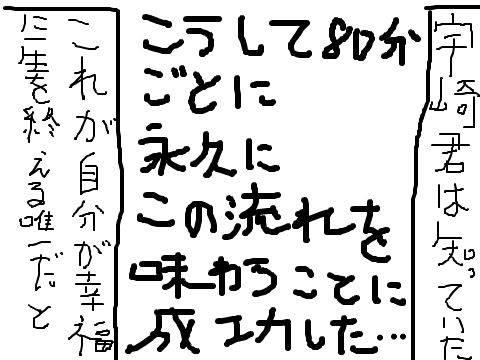 宇崎君は知っていた
こうして80分
ごとに
永久に
この流れを
味わうことに
成功した…
これが自分が幸福
に生を終える唯一だと